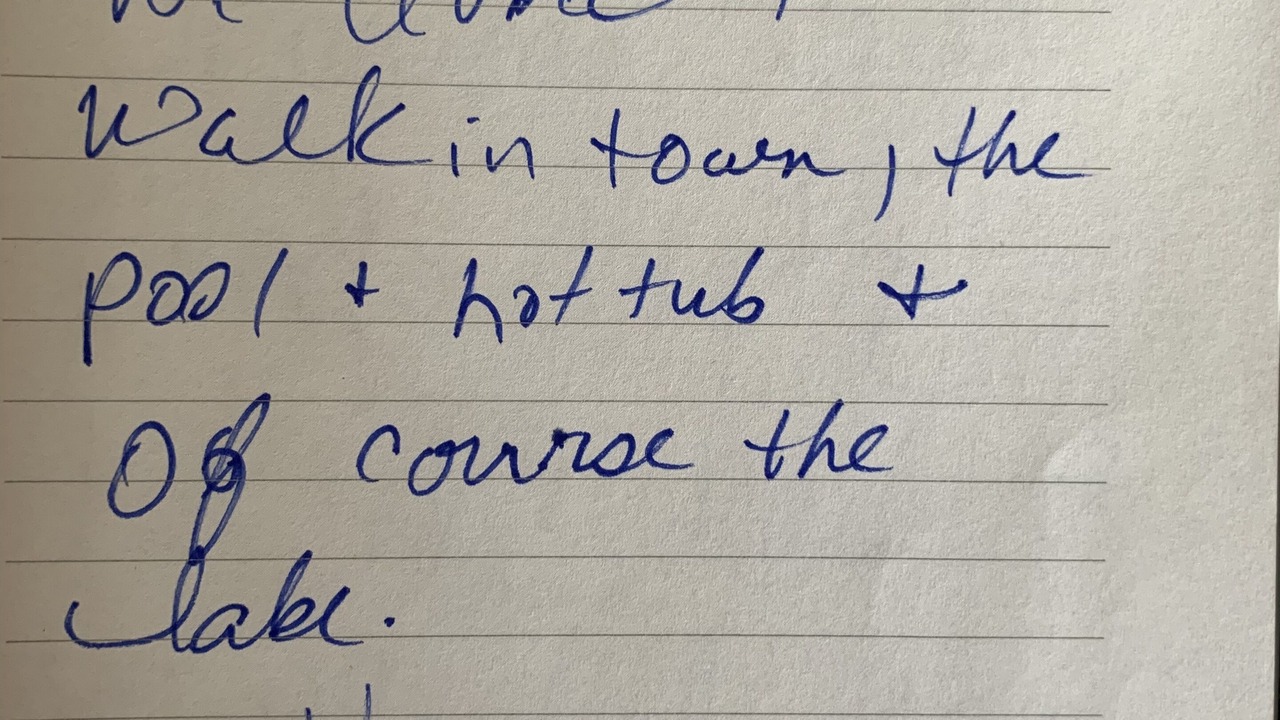 Walk in town, the
pool + hot tub +
of course the
lake.